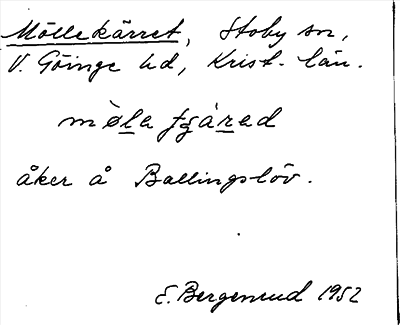 Möllekärret, Stoby sn,
V. Göinge hd, Krist. län.
åker å Ballingslöv.
E. Bergenrud 1952